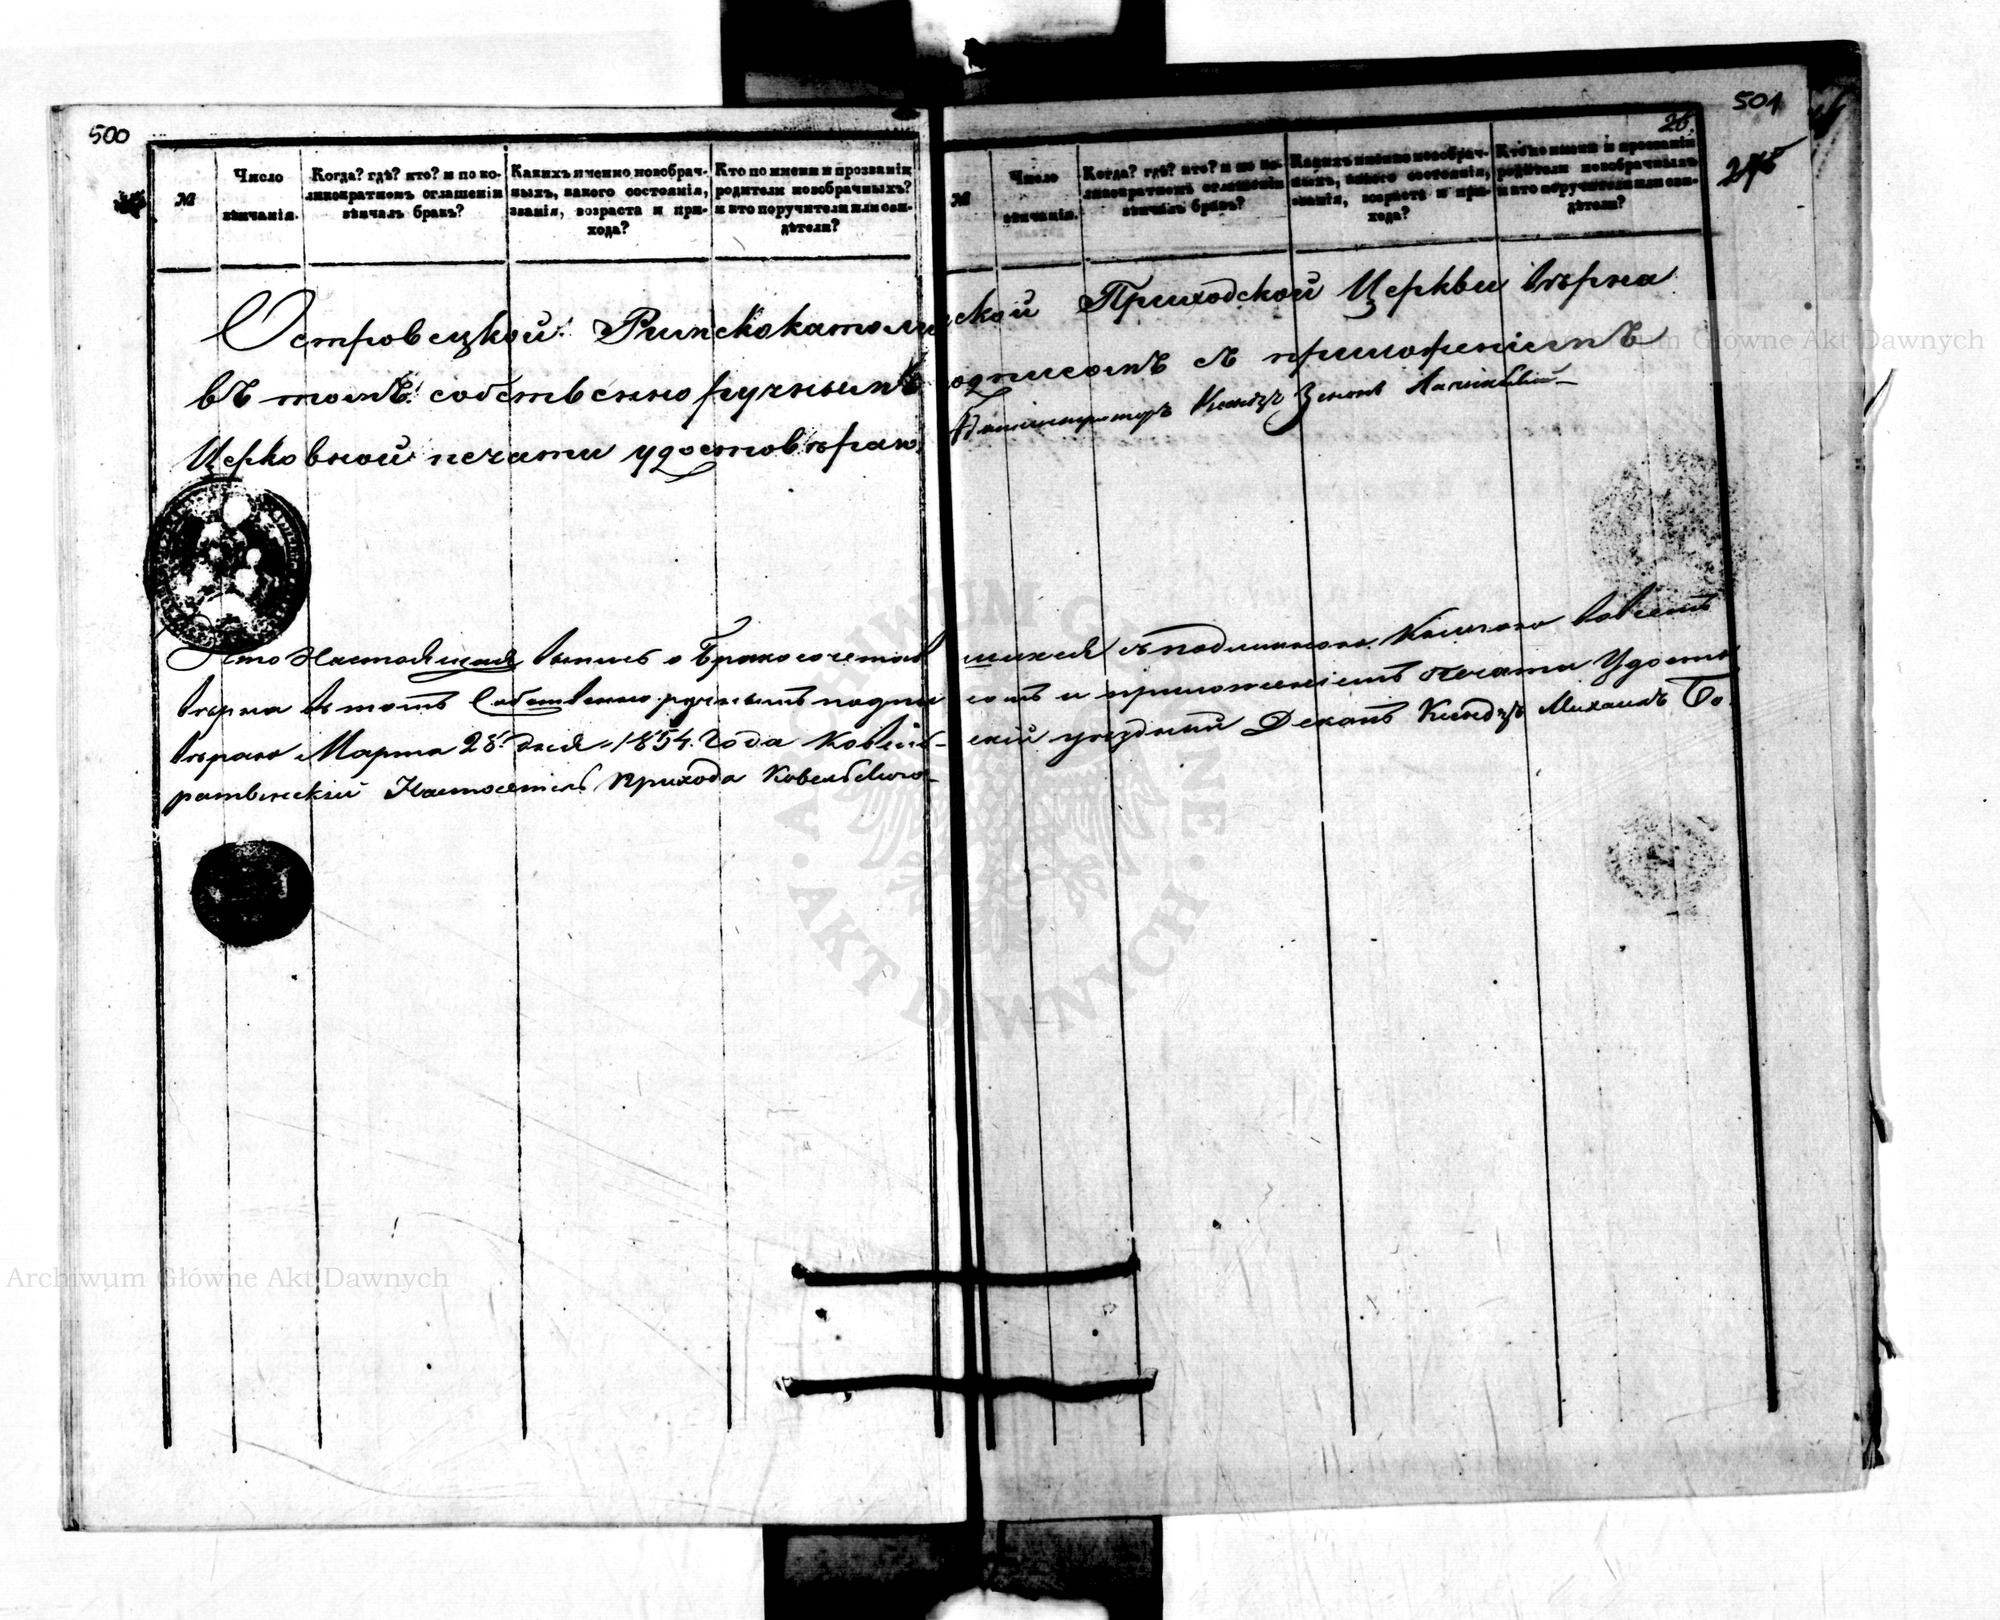 500
№
Число
вѣнчанія.
Когда? гдѣ? кто? и по ко-
ликократномъ оглашеніи
вѣнчалъ бракъ?
Какихъ именно новобрач-
ныхъ, какого состоянія,
званія, возраста и при-
хода?
Кто по имени и прозванію
родители новобрачныхъ?
и кто поручители или сви-
дѣтели?
501
26.
№
Число
вѣнчанія.
Когда? гдѣ? кто? и по ко-
ликократномъ оглашеніи
вѣнчалъ бракъ?
Какихъ именно новобрач-
ныхъ, какого состоянія,
званія, возраста и при-
хода?
Кто по имени и прозванію
родители новобрачныхъ
и кто поручители или сви-
дѣтели?
Островецкой Римскокатолической Приходской Церкви вѣрна
въ томъ собственноручнымъ подписомъ съ приложеніемъ
Церковной печати удостовѣряю, Администраторъ Ксендзъ Зенонъ
Что Настоящая выпись о Бракосочетавшихся съ подлинною Книгою во всемъ
вѣрна въ томъ Собственноручнымъ подписомъ и приложеніемъ печати Удосто
вѣряю Марта 28 дня 1854 Года Ковельскій уѣздный Деканъ Ксендзъ Михаилъ Бо
ратынскій Настоятель Прихода Ковельского
ARCHIWUM GŁÓWNE AKT DAWNYCH
Archiwum Główne Akt Dawnych
Archiwum Główne Akt Dawnych